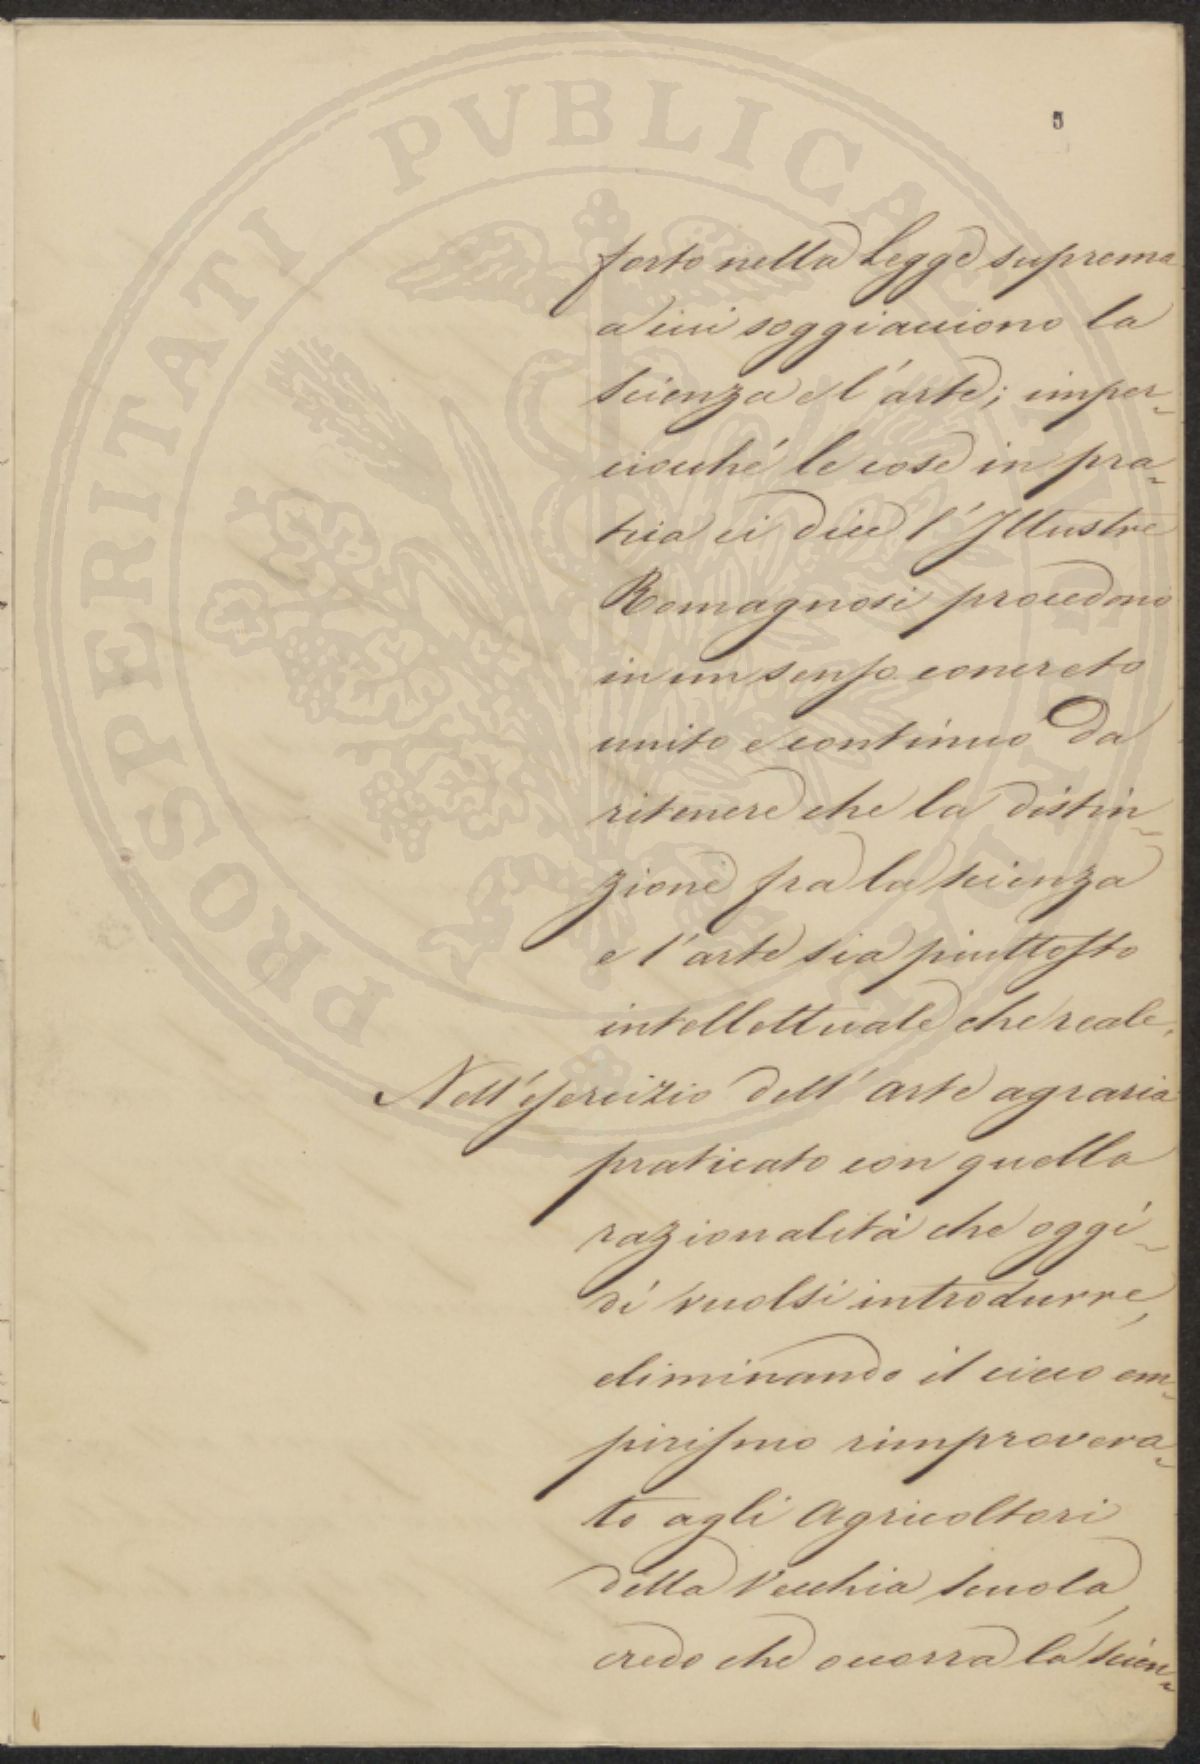 5
forto nella Legge suprema
a cui soggiacciono la
Scienza e l'arte; imper-
ciocché le cose in pra-
tica ci dice l'Illustre
Romagnosi procedono
in un senso concreto
unito e continuo da
ritenere che la distin-
zione fra la scienza
e l'arte sia piuttosto
intellettuale che reale.
Nell'esercizio dell'arte agraria
praticato con quella
razionalità che oggi-
dì vuolsi introdurre,
eliminando il cieco em-
pirismo rimprovera-
to agli Agricoltori
della Vecchia Scuola,
credo che occorra la Scien-
PROSPERITATI PVBLICAE